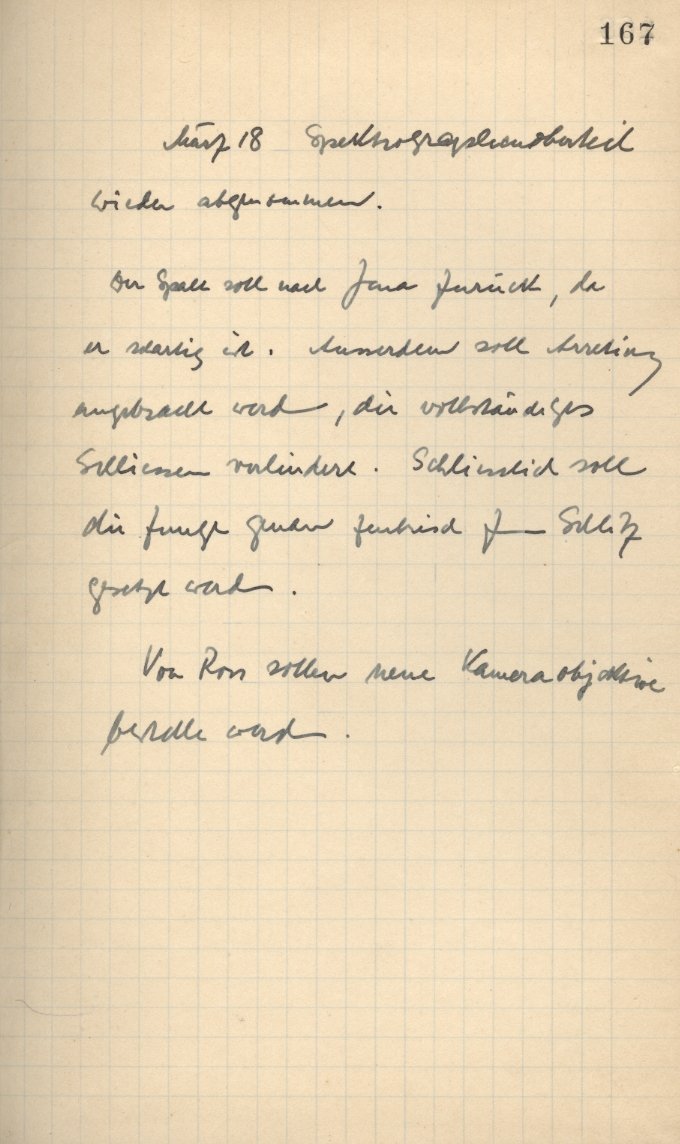 167
März 18 Spektrographenoberteil
wieder abgenommen.
Der Spalt soll nach Jena zurück, da
er schartig ist. Ausserdem soll Arretierung
angebracht werden, die vollständiges
Schliessen verhindert. Schliesslich soll
die Zunge genau zentrisch zum Schlitz
gesetzt werden.
Von Ross sollen neue Kameraobjektive
bestellt werden.